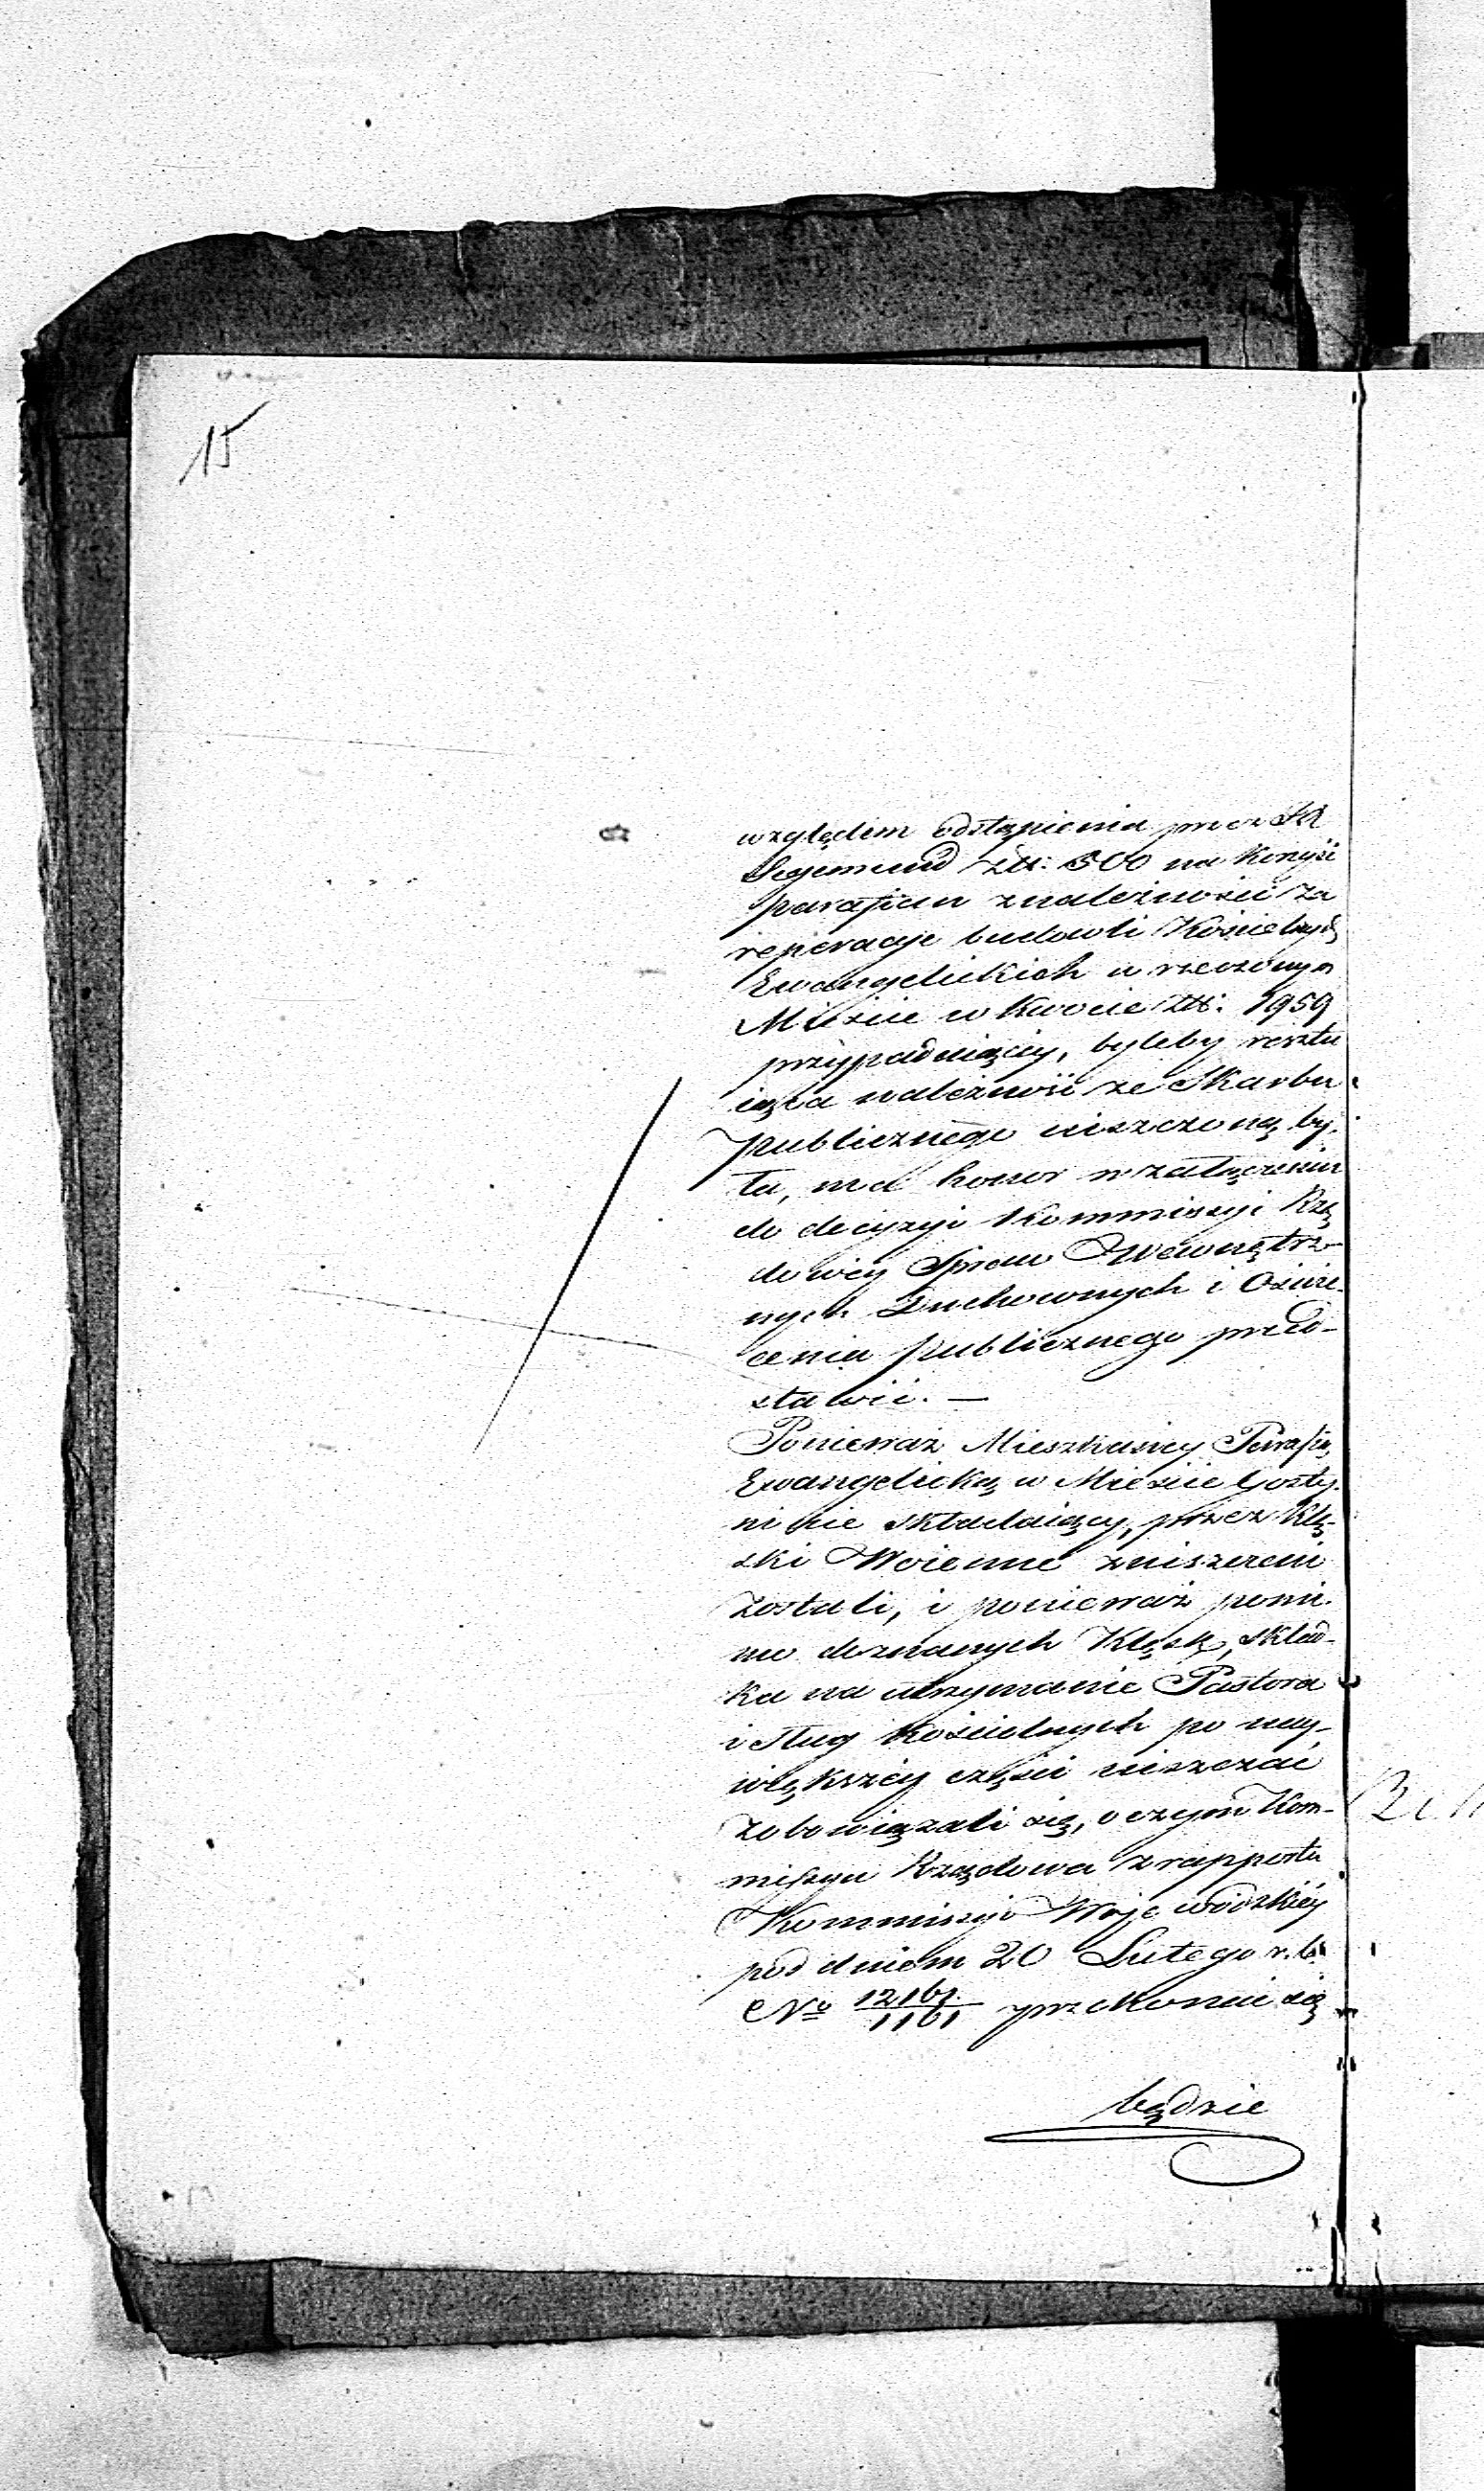 15
względem odstąpienia przez St
Segemund Złt: 500 na Korzyść
parafian z należności za
reperacje budowli Kościelnych
Ewangelickich w rzeczonym
Mieście w Kwocie Złt: 1959
przypadaiącey, byleby reszta
iąca należność ze Skarbu
publicznego uiszczoną by-
ła, ma honor w załączeniu
do decyzyi Kommissyi Rzą
dowéy Spraw Wewnętrz-
nych Duchownych i Oświe-
cenia publicznego przed-
stawić. —
Ponieważ Mieszkańcy Parafią
Ewangelicką w Mieście Gosty-
ninie składaiący, przez Klę-
ski Woienne zniszczeni
zostali, i ponieważ pomi-
mo doznanych Klęsk, skład-
ka na utrzymanie Pastora
i sług Kościelnych po nay-
większéy części uiszczać
zobowiązali się, o czym Kom-
missya Rządowa z rapportu
Kommissyi Wojewódzkiéy
pod dniem 20 Lutego r. b.
No 12161/1161 przekonać się
będzie